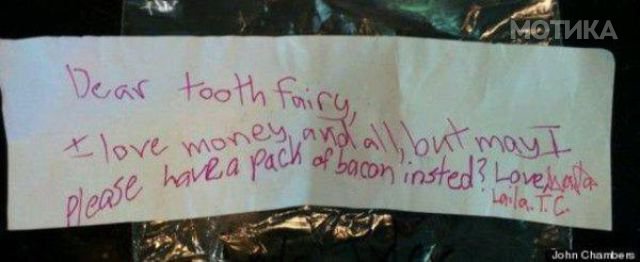 МОТИКА
Dear tooth fairy,
I love money, and all, but may I
please have a pack of bacon insted? Love,
Laila. T.C.
John Chambers